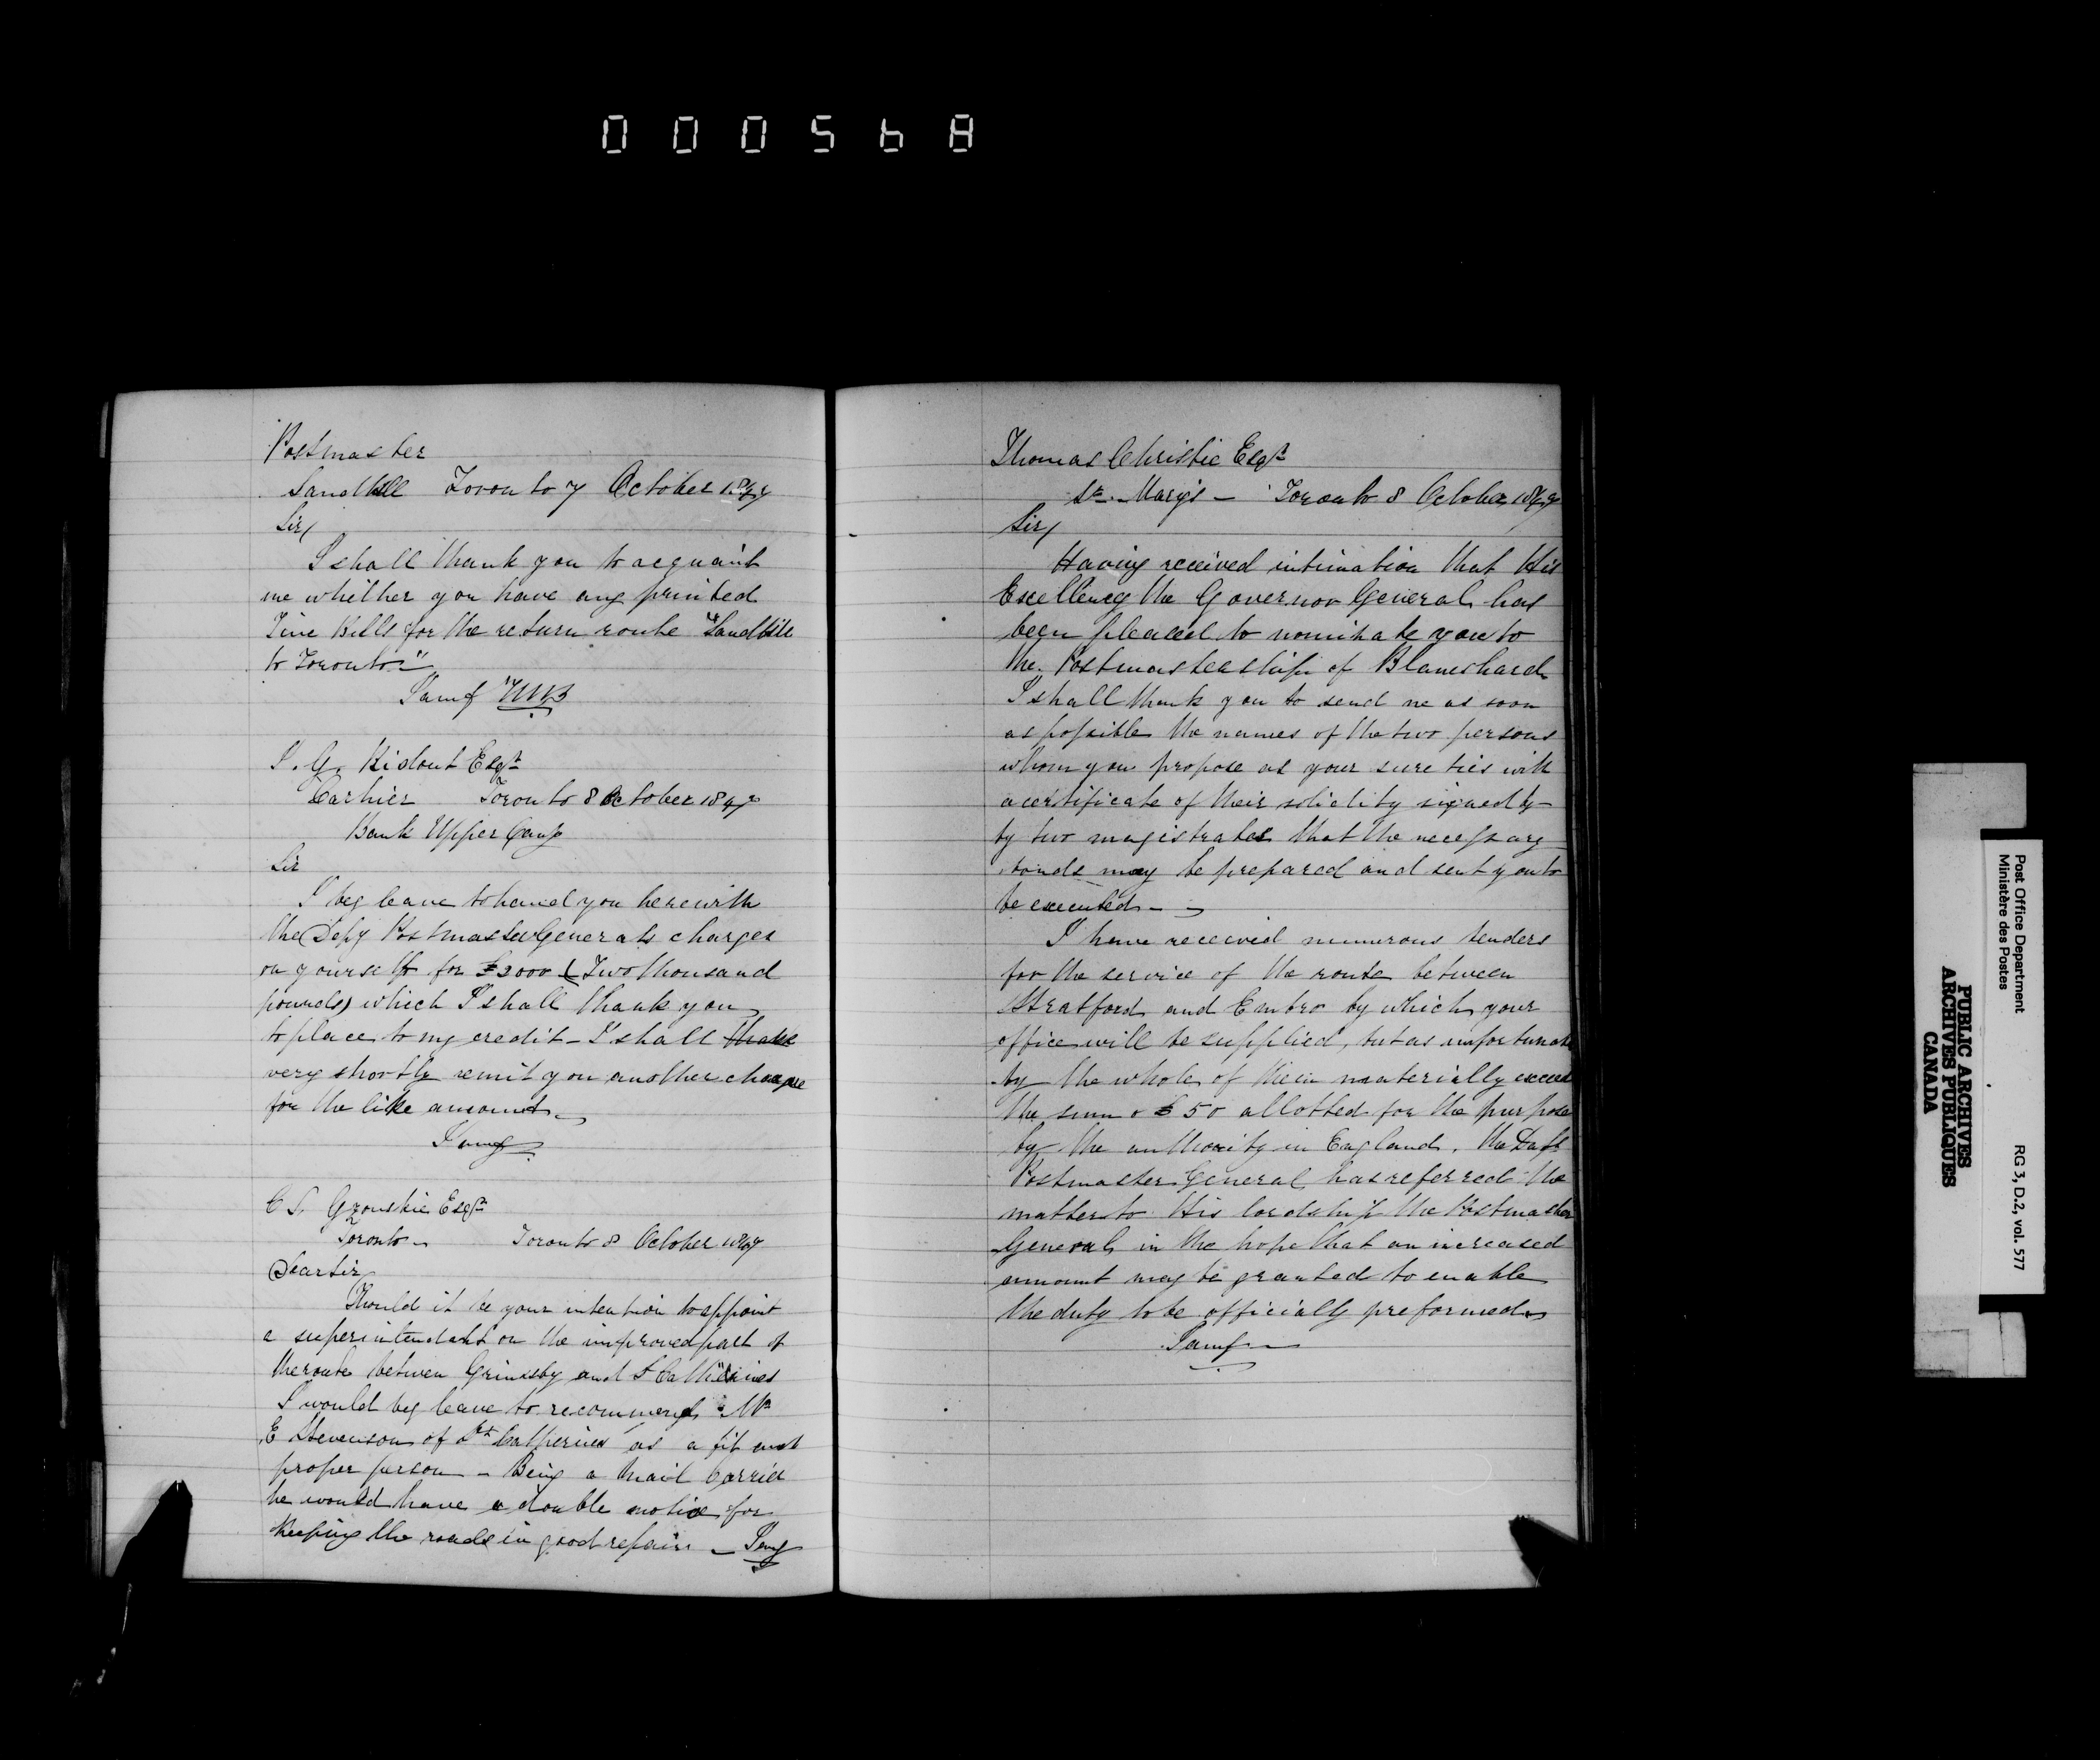 000568
Postmaster
Sandhill Toronto 7 October 1847
Sir/
I shall thank you to acquaint
me whether you have any printed
Time Bills for the return route "Sandhill
to Toronto"
I am &
T. G. Ridout Esqr
Cashier Toronto 8 October 1847
Bank Upper Cana
Sir
I beg leave to hand you herewith
the Depy Postmaster Generals charges
on yourself for £2000 (Two thousand
pounds) which I shall thank you
to place to my credit - I shall thank
very shortly remit you another charge
for the like amount
I am &
C S. Gzouskie Esqr
Toronto - Toronto 8 October 1847
Dear Sir
Should it be your intention to appoint
a superintendant on the improved part of
the route between Grimsby and St Catherines
I would beg leave to recommend Mr
E Stevenson of St Catherines as a fit and
proper person - Being a Mail Carrier
he would have a double motive for
Keeping the roads in good repair - I am &
Thomas Christie Esqr
St. Mary's - Toronto 8 October 1847
Sir/
Having received intimation that His
Excellency the Governor General has
been pleased to nominate you to
the Postmastership of Blanshard
I shall thank you to send me as soon
as possible the names of the two persons
whom you propose as your sureties with
a certificate of their solidity signed by
by two magistrates that the necessary
bonds may be prepared and sent you to
be executed -
I have received numerous tenders
for the service of the route between
Stratford and Embro by which your
office will be supplied, but as unfortunate
by the whole of them materially exceed
the sum o £50 allotted for the purpose
by the authority in England, the
Postmaster General has referred the
matter to His lordship the Postmaster
General in the hope that an increased
amount may be granted to enable
the duty to be officially preformed
I am &
Post Office Department
Ministère des Postes
RG 3, D.2, vol. 577
PUBLIC ARCHIVES
ARCHIVES PUBLIQUES
CANADA